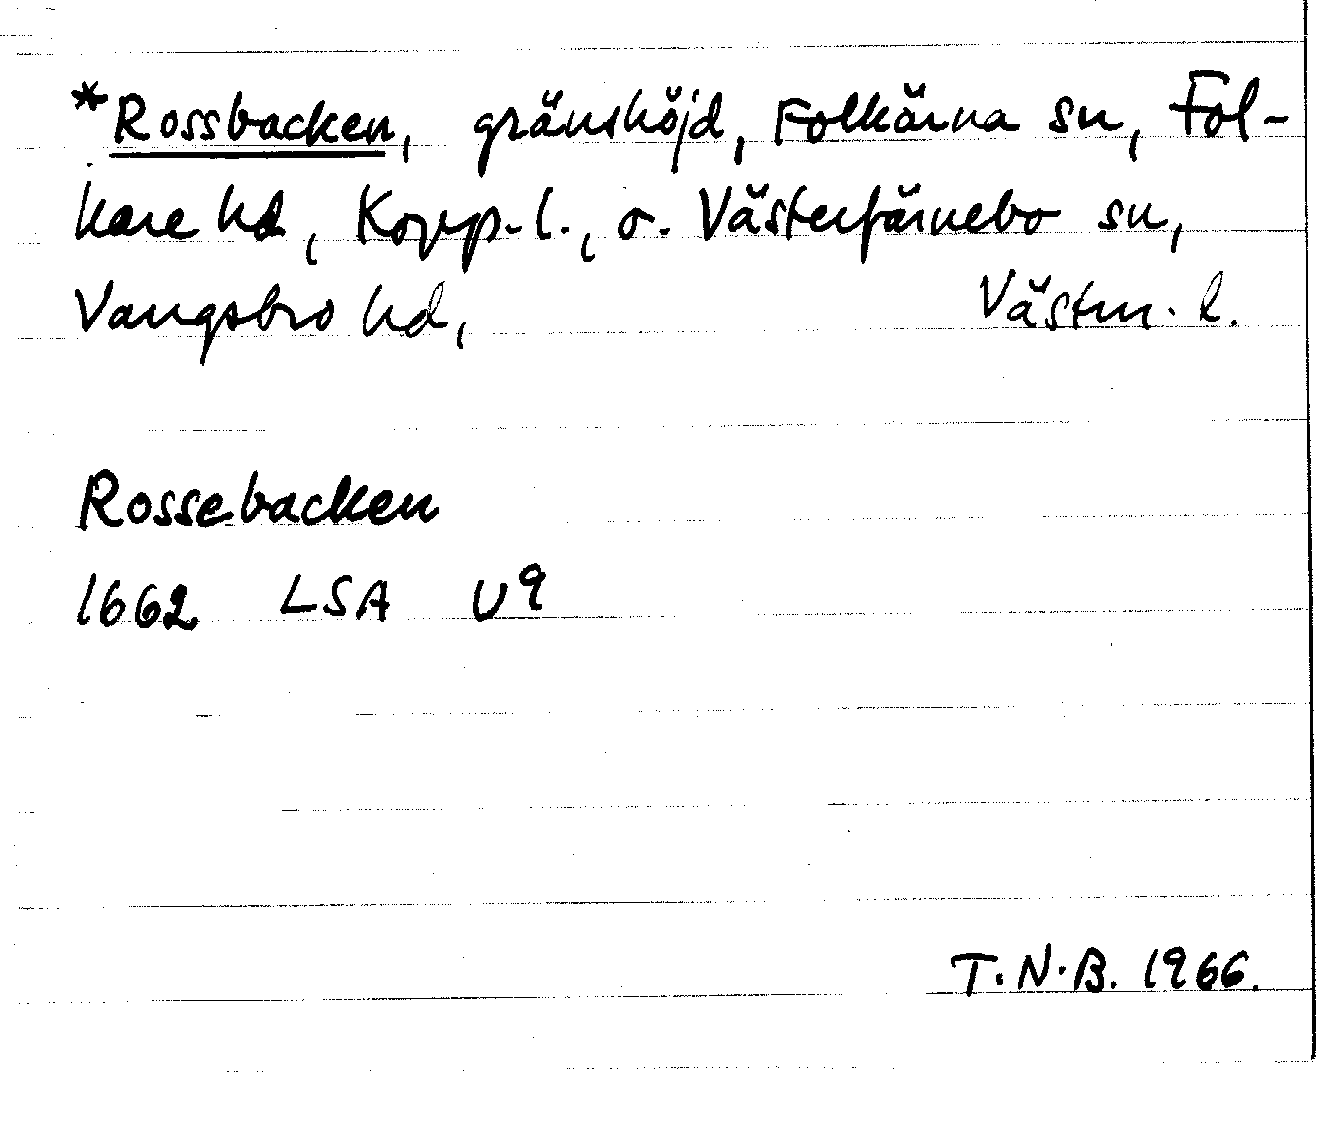 *Rossbacken, gränshöjd, Folkärna sn, Fol-
kare hd, Kopp. l., o. Västerfärnebo sn,
Vangsbro hd, Västm. l.
Rossebacken
1662 LSA U9
T.N.B. 1966.